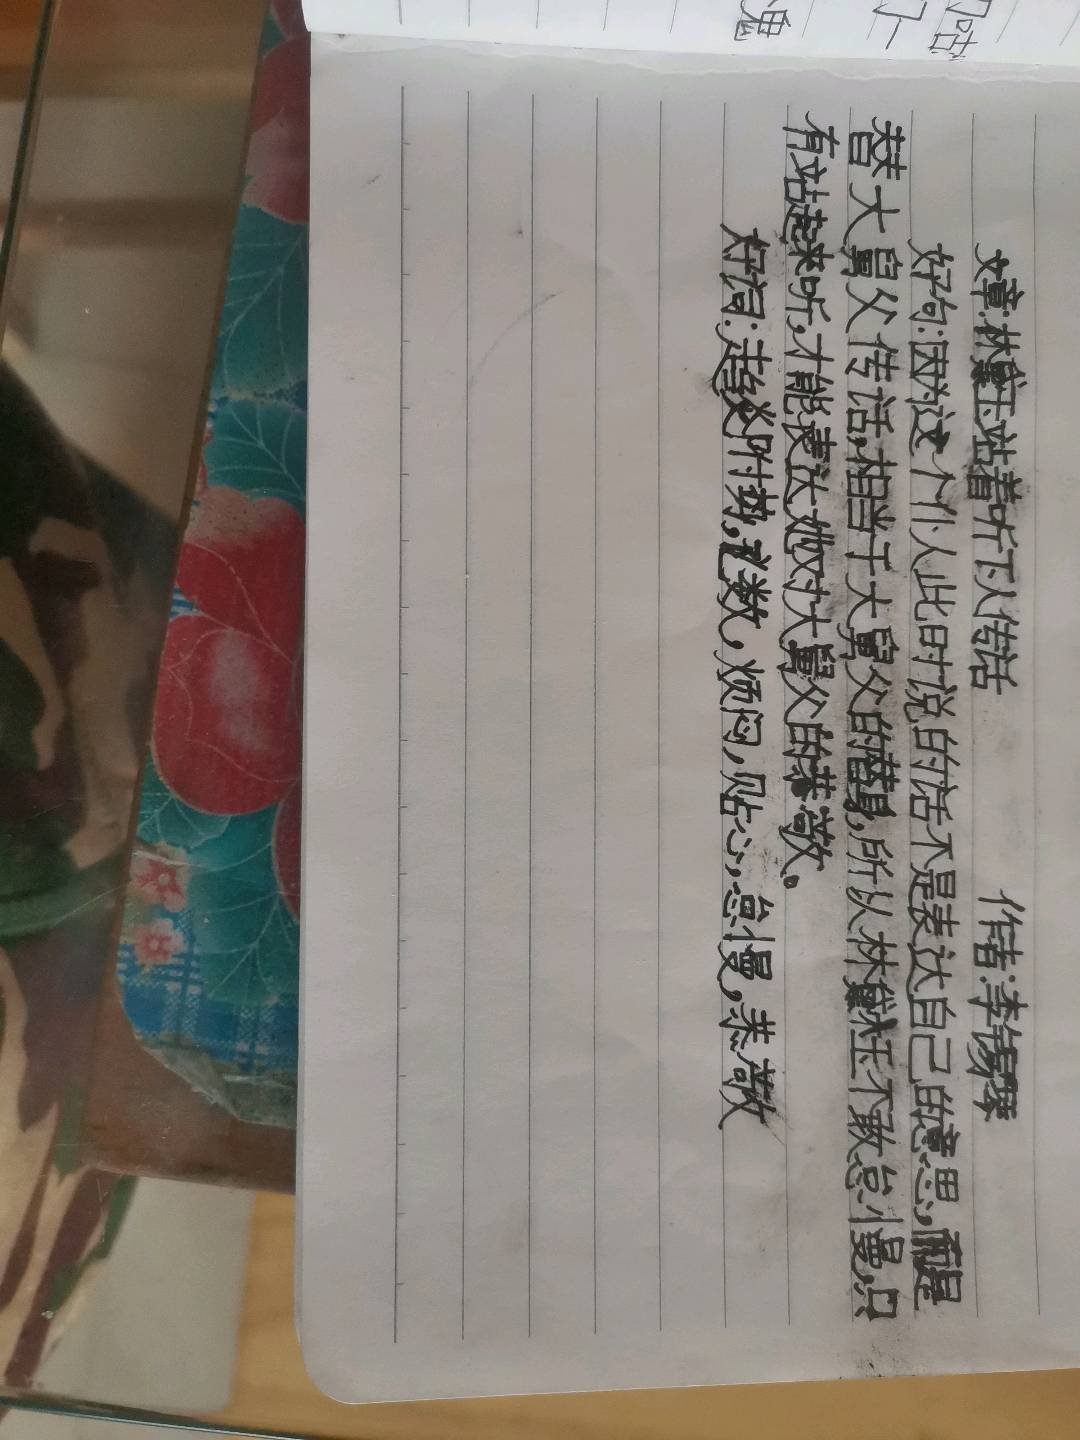 文章:林黛玉站着听下人传话 作者:李锡琴
好句:因为这个仆人此时说的话不是表达自己的意思,而是
替大舅父传话,相当于大舅父的替身,所以林黛玉不敢怠慢,只
有站起来听,才能表达她对大舅父的恭敬。
好词:趋炎附势,礼数,烦闷,贴心,怠慢,恭敬
鬼
咕